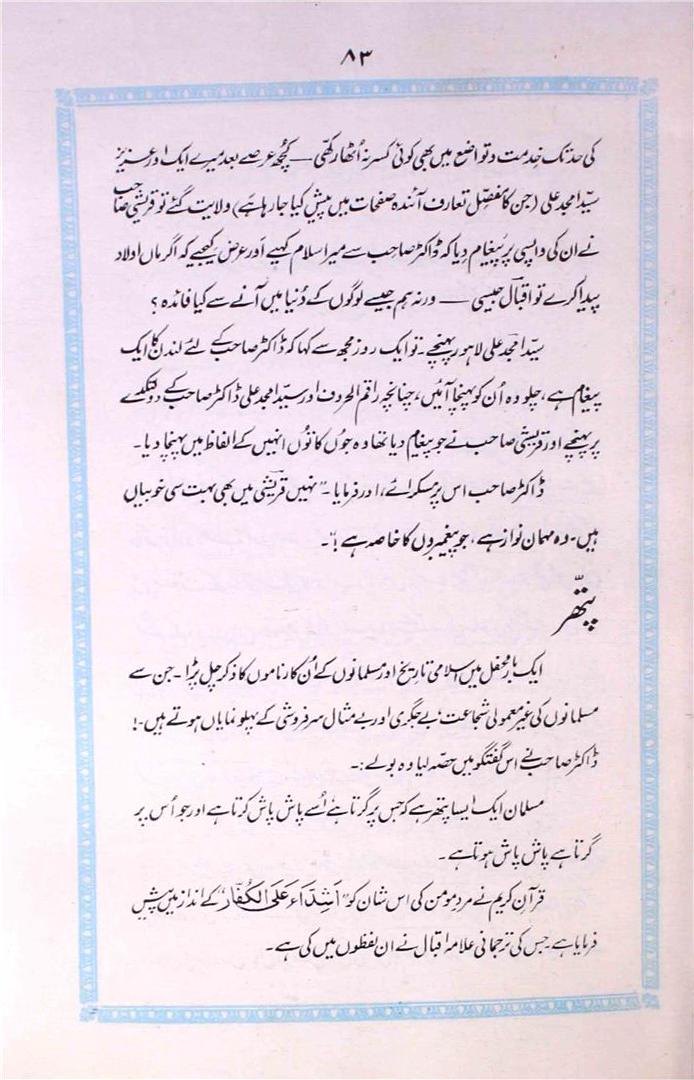 ۸۳
کی حد تک خدمت و تواضع میں بھی کوئی کسر نہ اُٹھا رکھی — کچھ عرصے بعد میرے ایک اور عزیز
سیّد امجد علی (جن کا مفصّل تعارف آئندہ صفحات میں پیش کیا جا رہا ہے) ولایت گئے تو قریشی صاحب
نے ان کی واپسی پر پیغام دیا کہ ڈاکٹر صاحب سے میرا سلام کہیے اور عرض کیجیے کہ اگر ماں اولاد
پیدا کرے تو اقبال جیسی — ورنہ ہم جیسے لوگوں کے دُنیا میں آنے سے کیا فائدہ ؟
سیّد امجد علی لاہور پہنچے۔ تو ایک روز مجھ سے کہا کہ ڈاکٹر صاحب کے لئے لندن کا ایک
پیغام ہے، چلو وہ اُن کو پہنچا آئیں، چنانچہ راقم الحروف اور سیّد امجد علی ڈاکٹر صاحب کے دولتکدے
پر پہنچے اور قریشی صاحب نے جو پیغام دیا تھا وہ جوں کا توں انہیں کے الفاظ میں پہنچا دیا۔
ڈاکٹر صاحب اس پر مسکرائے، اور فرمایا۔ "نہیں قریشی میں بھی بہت سی خوبیاں
ہیں۔ وہ مہمان نواز ہے، جو پیغمبروں کا خاصہ ہے!"۔
پتھّر
ایک بار محفل میں اسلامی تاریخ اور مسلمانوں کے اُن کارناموں کا ذکر چل پڑا۔ جن سے
مسلمانوں کی غیر معمولی شجاعت، بے جگری اور بے مثال سرفروشی کے پہلو نمایاں ہوتے ہیں۔!
ڈاکٹر صاحب نے اس گفتگو میں حصّہ لیا وہ بولے:۔
مسلمان ایک ایسا پتھر ہے کہ جس پر گرتا ہے اُسے پاش پاش کرتا ہے اور جو اُس پر
گرتا ہے پاش پاش ہوتا ہے۔
قرآن کریم نے مردِ مومن کی اس شان کو "اَشِدَّاءَ عَلَی الْکُفَّار" کے انداز میں پیش
فرمایا ہے۔ جس کی ترجمانی علامہ اقبال نے ان لفظوں میں کی ہے۔